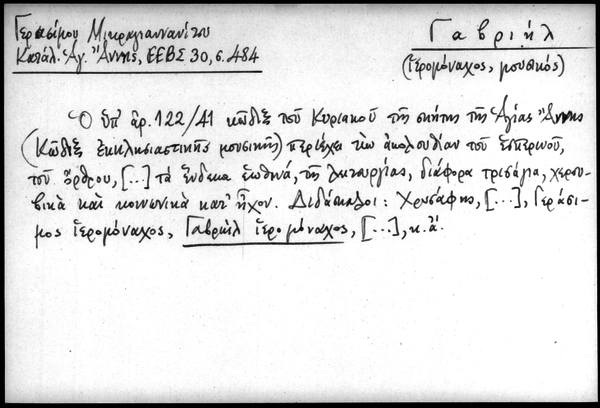 Γερασίμου Μικραγιαννανίτου
Κατάλ. Ἁγ. Ἄννης, ΕΕΒΣ 30, σ. 484
Γαβριήλ
(ἱερομόναχος, μουσικός)
Ὁ ὑπ' ἀρ. 122/41 κῶδιξ τοῦ Κυριακοῦ τῆς σκήτης τῆς Ἁγίας Ἄννης
(Κῶδιξ ἐκκλησιαστικῆς μουσικῆς) περιέχει τὴν ἀκολουθίαν τοῦ ἑσπερινοῦ,
τοῦ ὄρθρου, [...] τὰ ἕνδεκα ἑωθινά, τῆς λειτουργίας, διάφορα τρισάγια, χερου-
βικὰ καὶ κοινωνικὰ κατ' ἦχον. Διδάσκαλοι: Χρυσάφης, [...], Γεράσι-
μος ἱερομόναχος, Γαβριὴλ ἱερομόναχος, [...], κ.ἄ.